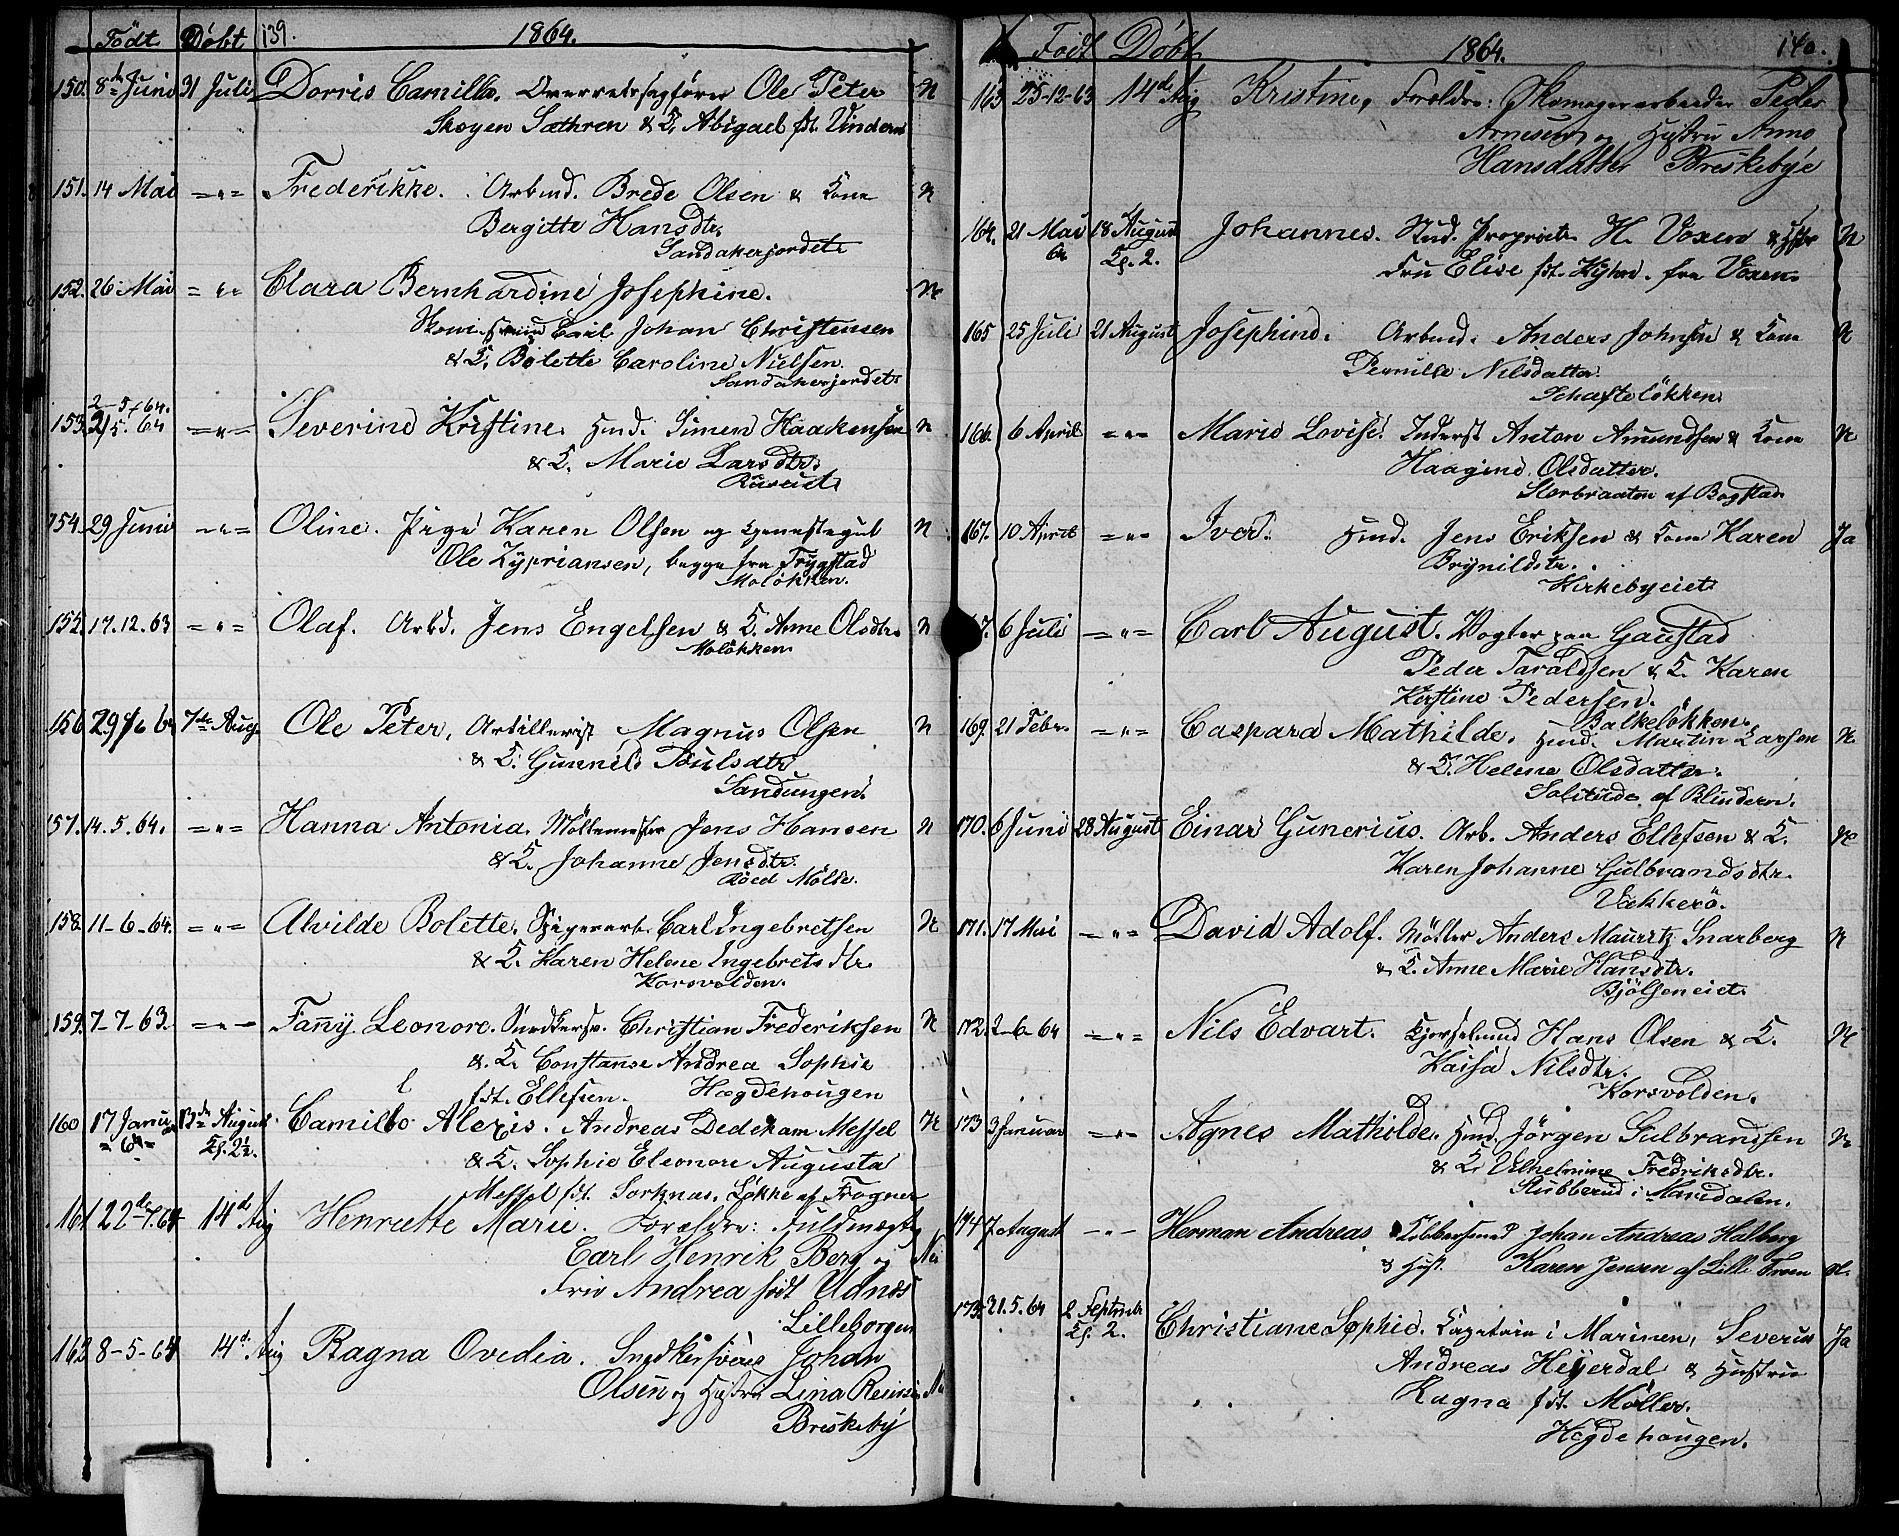 Födt Döbt 139. 1864.
150. 8de Juni 31 Juli Dorris Camilla. Overretssagförer Ole Peter N
Skøyen Sæthren & K. Abigael fdt. Vindern
151. 14 Mai -"- Frederikke. Arbmd. Brede Olsen & Kone N
Bergitte Hansdtr.
Sandakerjordet
152. 26 Mai -"- Clara Bernhardine Josephine. N
Emil Johan Christensen
& K. Bolette Caroline Nielsen.
Sandakerjordet
2-5-64.
153. 2/5. 64 -"- Severine Kristine. Hmd. Simen Haakensen N
& K. Marie Larsdtr.
154. 29 Juni -"- Oline. Pige Karen Olsen og Tjenestegut N
Ole Zypriansen, begge fra Trygstad
Moløkken.
155. 17.12.63 -"- Olaf. Arbd. Jens Engelsen & K. Anne Olsdtr. N
Moløkken
156 29/6 64 7de Aug. Ole Peter, Artillerist Magnus Olsen N
& K. Gunnild Poulsdtr
Sandungen.
157. 14.5.64. -"- Hanna Antonia. Möllemester Jens Hansen N
& K. Johanne Jensdtr.
Röed Mölle.
158. 11-6-64. -"- Alvilde Bolette. Spigerarb. Carl Ingebretsen N
& K. Karen Helene Ingebretsdtr.
Korsvolden.
159. 7-7-63. -"- Fany Leonore. Snedkersv. Christian Frederiksen N
& K. Constanse Andrea Sophie
fdt. Ellefsen. Hægdehougen
160 17 Januar 13de August Camillo Alexis. Andreas Dedekam Messel N
64 Kl. 2½. & K. Sophie Eleonore Augusta
Messel fdt. Sorknæs. Løkke af Frogner
161 22de-7.64 14de Aug Henriette Marie. Forældre: Fuldmægtig
Carl Henrik Berg og Nei
Frue Andrea födt Udnæs
Lilleborgen
162 8-5-64 14d. Aug Ragna Ovedia. Snedkersvend Johan
Olsen og Hustru Lina
Briskeby
Födt Döbt 1864. 140.
163 25-12-63 14de Aug Kristine, Forældre: Skomagerarbeider Peder
Arnesen og Hustru Anne
Hansdatter Breskebye
164. 21 Mai 18 August Johannes. Stud. Propriet. H. Voxen & Hustr N
64 Kl. 2. Fru Elise fdt. fra Voxen.
165 25 Juli 21 August Josephine. Arbmd. Anders Johnsen & Kone N
Pernille Nilsdatter
Schafteløkken.
166. 6 April -"- Marie Lovise. Inderst Anton Amundsen & Kone N
Haagine Olsdatter.
Storbraaten af Bogstad
167. 10 April -"- Iver. Hmd. Jens Eriksen & Kone Karen Ja
Brynildstr.
Kirkebyeiet
67. 6 Juli -"- Carl August. Vogter paa Gaustad
Peder Taraldsen & K. Karen
Kirstine Pedersen.
Balkeløkken.
169. 21 Febr. -"- Caspara Mathilde. Hmd. Martin Larsen N.
& K. Helene Olsdatter.
Solitude af Blindern.
170. 6 Juni 28 August Einar Gunerius. Arb. Anders Ellefsen & K. N
Karen Johanne Gulbrandsdtr.
Vækkerö.
171. 17 Mai -"- David Adolf. Möller Anders Mauritz Snarberg N
& K. Anne Marie Hansdtr.
Bjölseneiet.
172. 2-6-64 -"- Nils Edvart. Kjørselmd Hans Olsen & K. N
Kaisa Nilsdtr.
Korsvolden.
173 3 Januar -"- Agnes Mathilde. Hmd. Jörgen Gulbrandsen N
& K. Vilhelmine Fredriksdtr.
Stubberud i Maridalen.
174 7 August -"- Herman Andreas Kobbersmed Johan Andreas Halberg
& Hust. Karen Jensen af Lille Froen N.
175 21.5.64 2 Septembr Christiane Sophie. Kaptain i Marinen, Severin Ja
Kl. 2. Andreas Heyerdal & Hustru
Ragna fdt. Møller.
Hegdehougen.